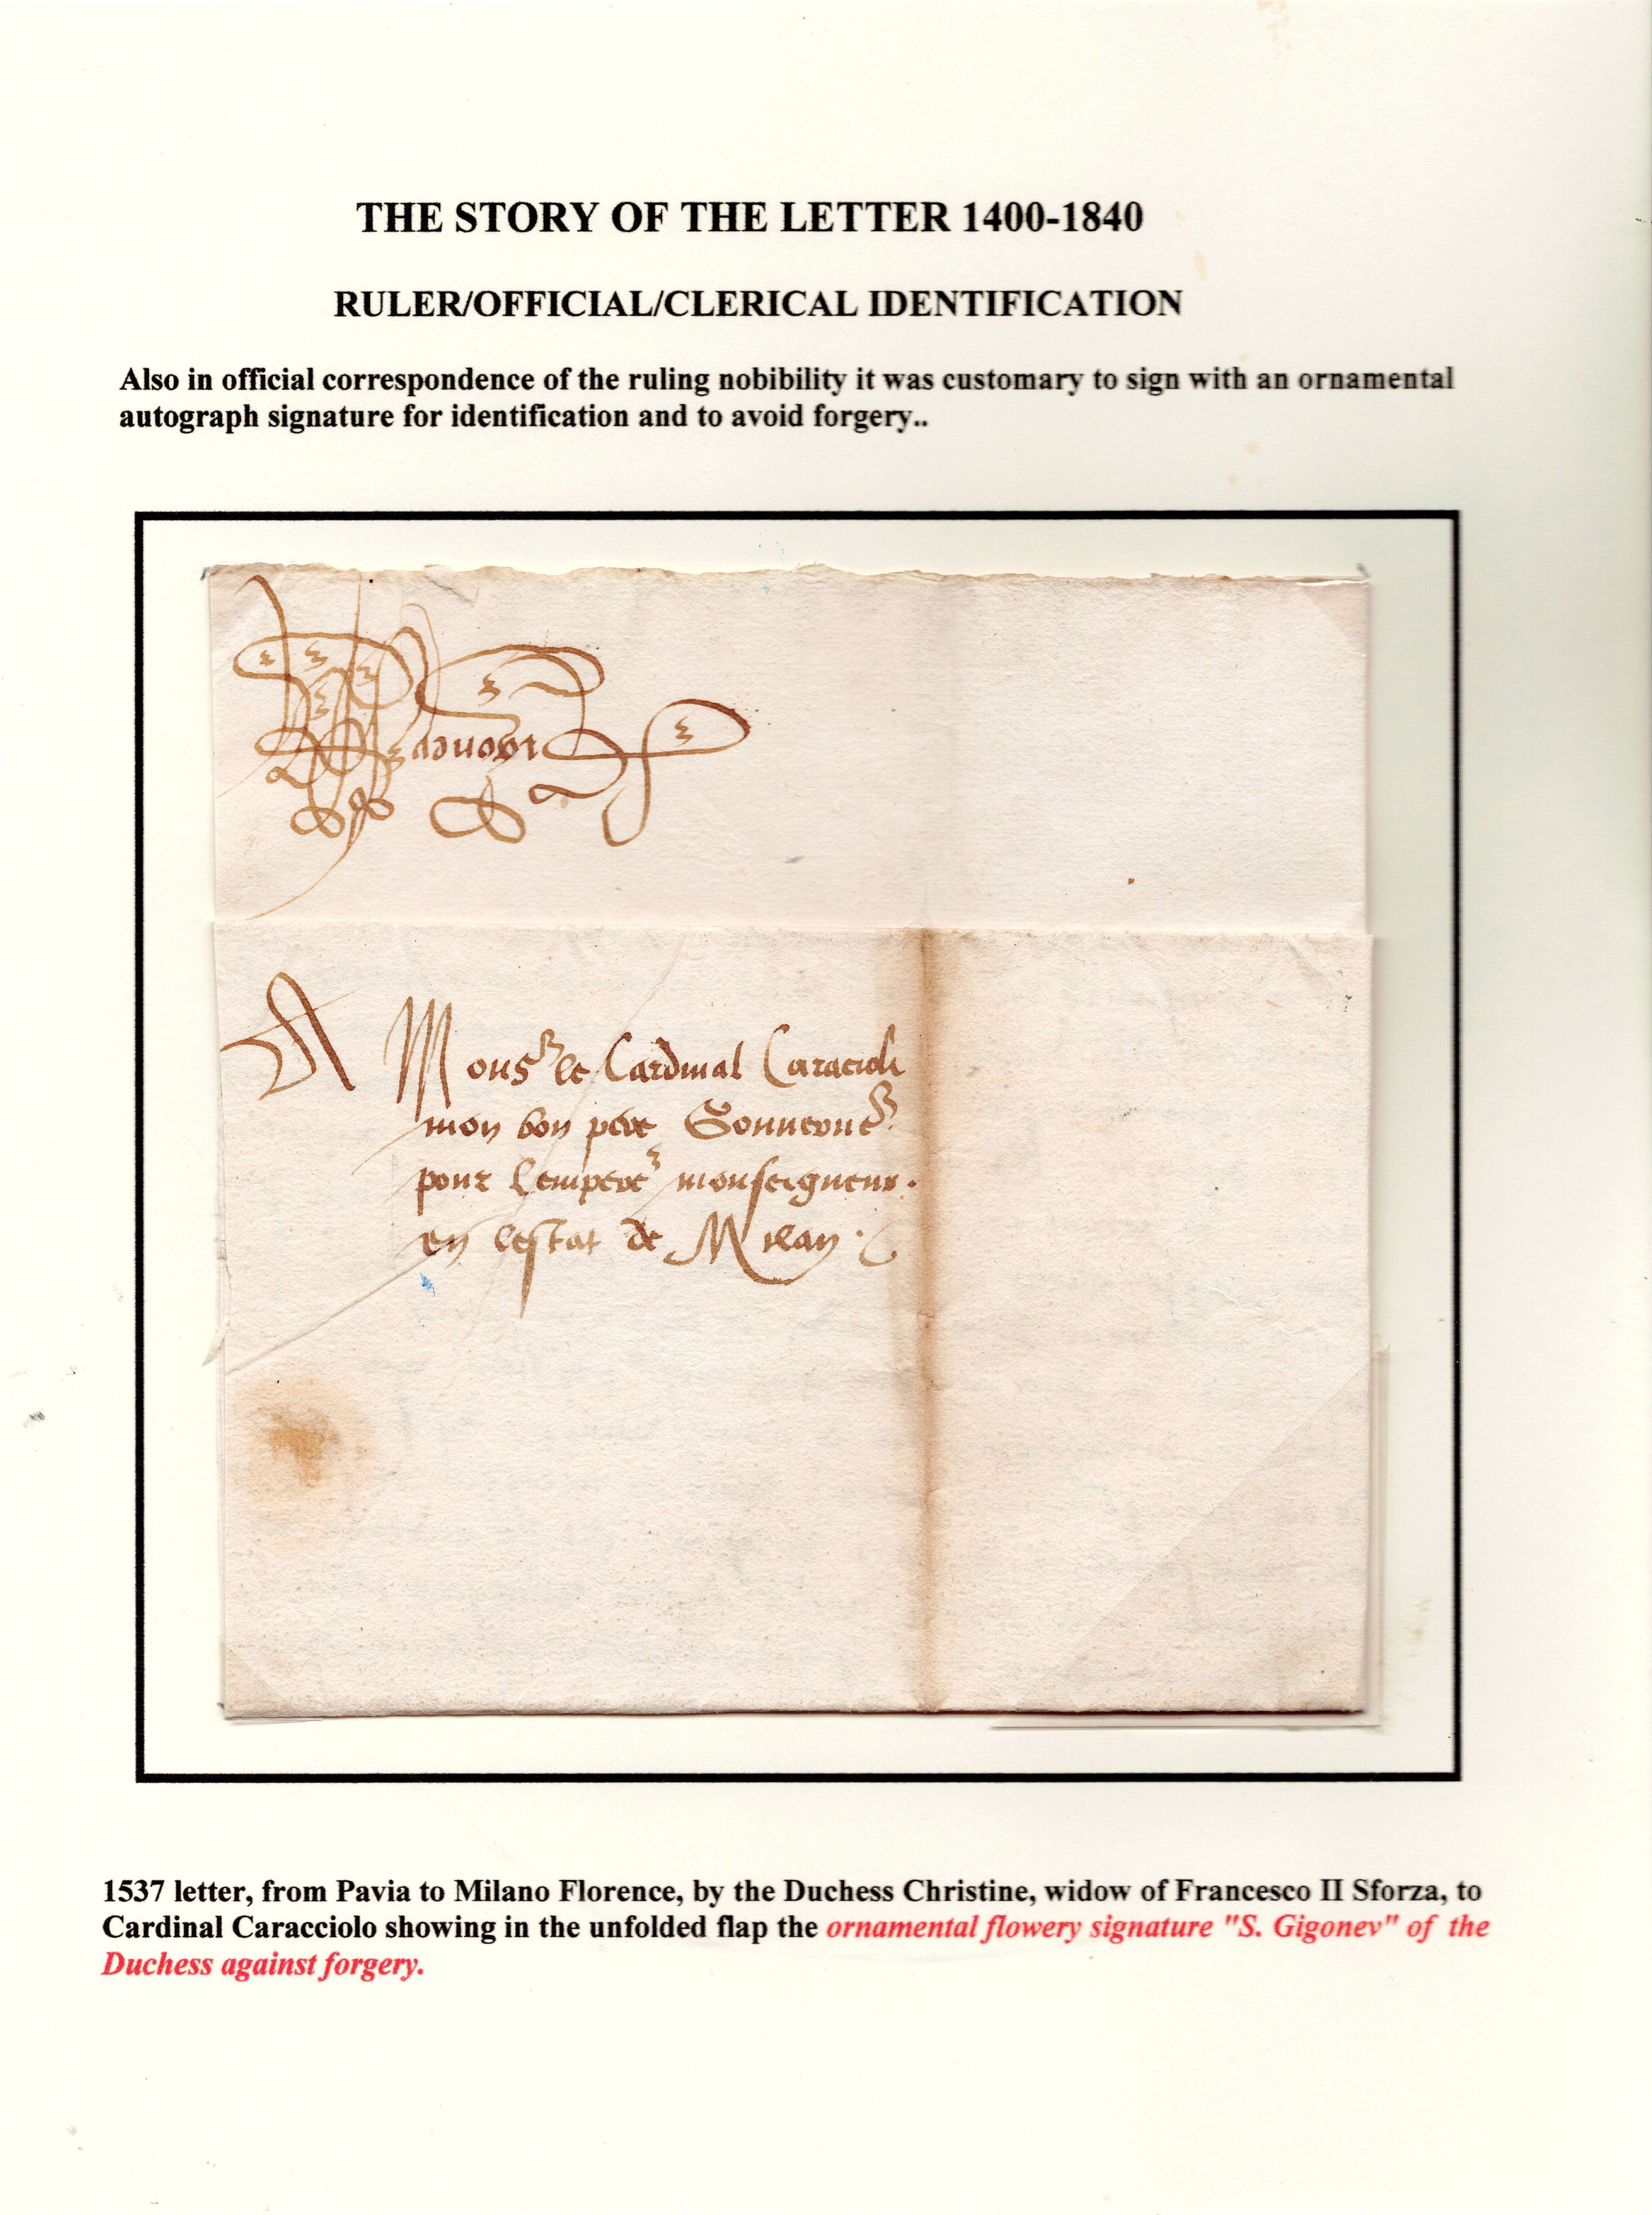 THE STORY OF THE LETTER 1400-1840
RULER/OFFICIAL/CLERICAL IDENTIFICATION
Also in official correspondence of the ruling nobibility it was customary to sign with an ornamental
autograph signature for identification and to avoid forgery..
A Mons.r le Cardinal Caracioli
mon bon pere
pour lempere.r monseigneur.
en lestat de Milan.
1537 letter, from Pavia to Milano Florence, by the Duchess Christine, widow of Francesco II Sforza, to
Cardinal Caracciolo showing in the unfolded flap the ornamental flowery signature "S. Gigonev" of the
Duchess against forgery.